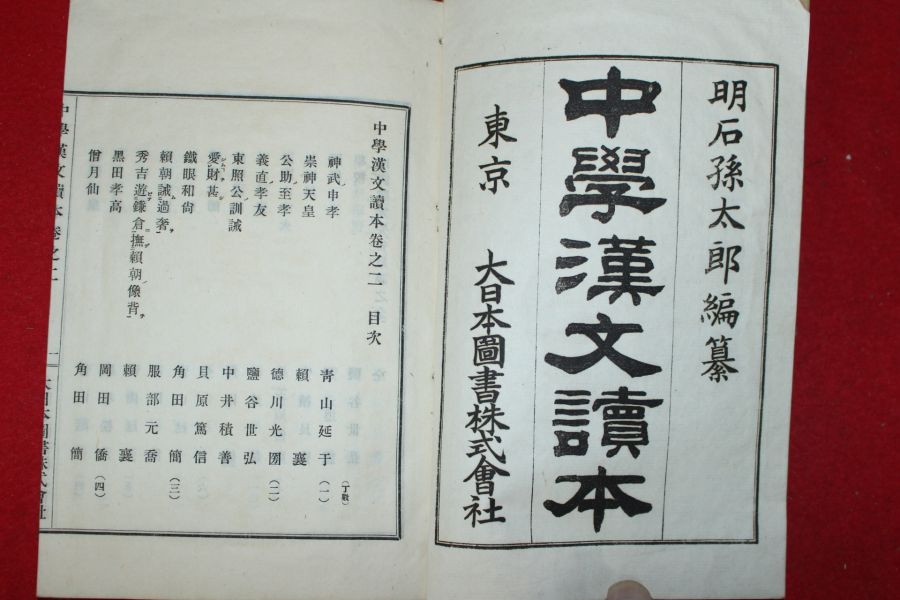 明石孫太郎編纂
中學漢文讀本
東京 大日本圖書株式會社
中學漢文讀本卷之二 目次
神武申孝 青山延于 (一) (丁數)
崇神天皇 賴襄
公助至孝 德川光圀 (二)
義直孝友 鹽谷世弘
東照公訓誡 中井積善
愛財甚 貝原篤信
鐵眼和尙 角田簡 (三)
賴朝誡過奢 服部元喬
秀吉遊鎌倉撫賴朝像背 賴襄
黑田孝高 岡田僑 (四)
僧月仙 角田簡
中學漢文讀本 卷之二 一 大日本圖書株式會社